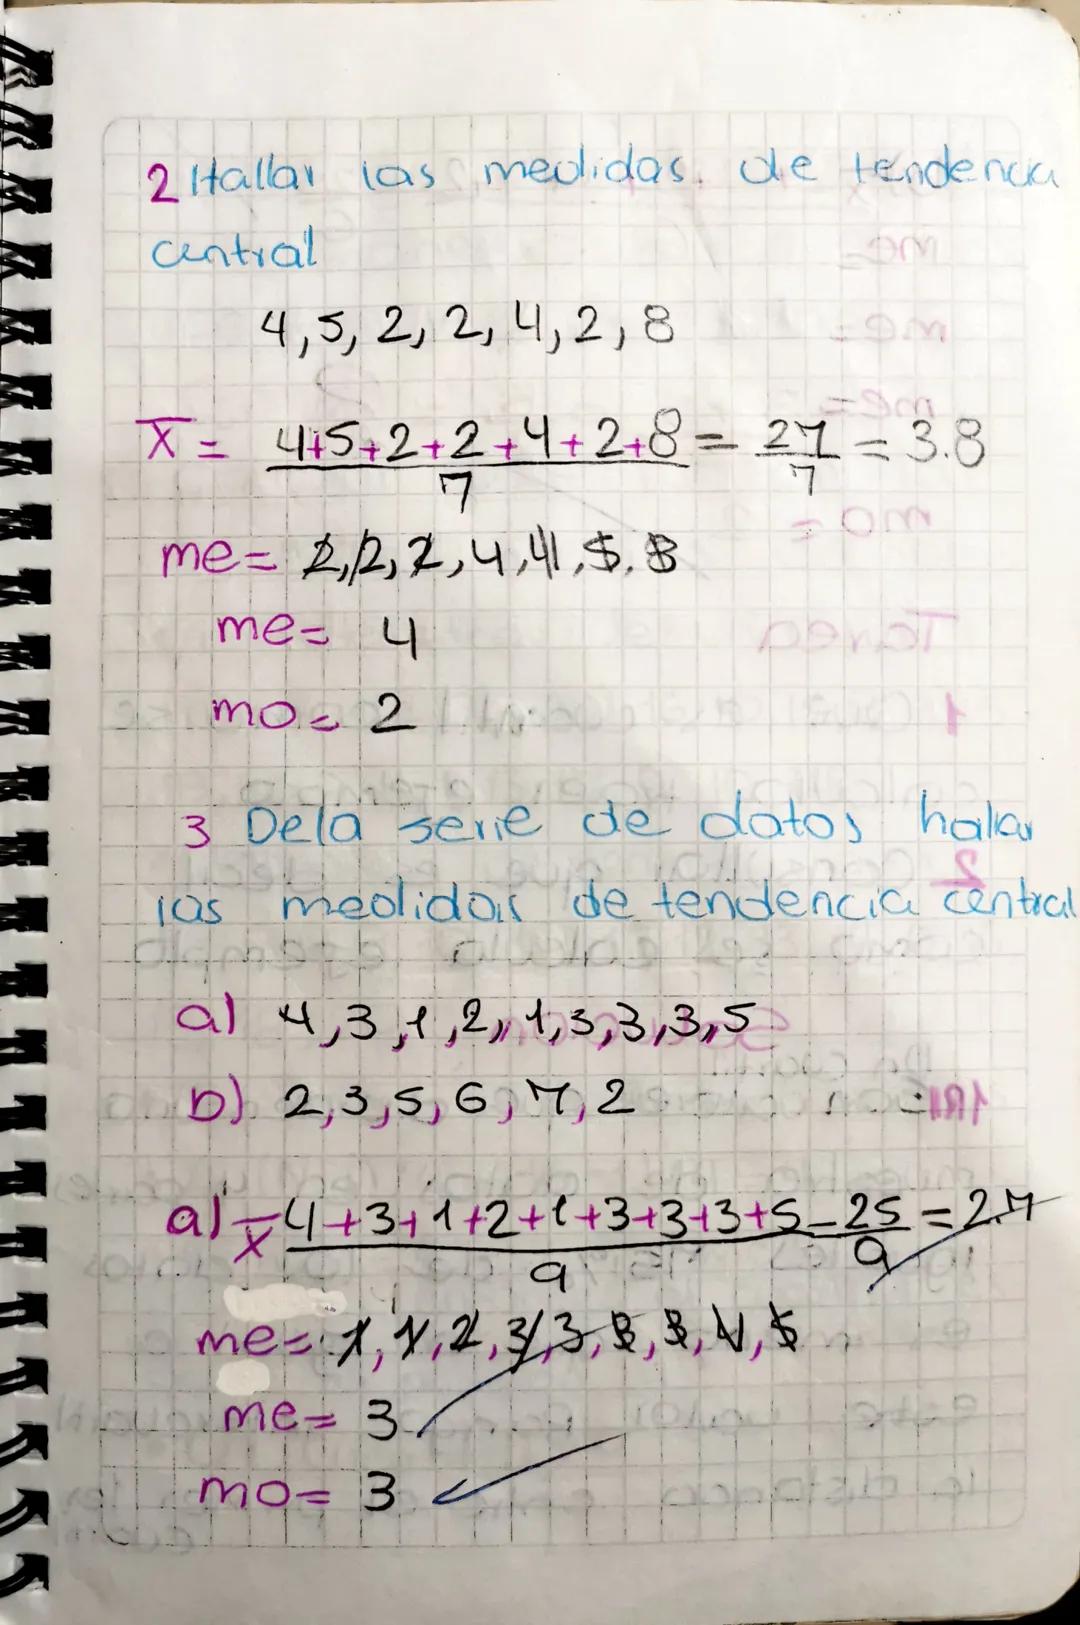 2 Hallar las medidas. de tendencia
central
4, 5, 2, 2, 4, 2, 8
X̅ = 4+5+2+2+4+2+8 / 7 = 27 / 7 = 3.8
me= 2, 2, 2, 4, 4, 5, 8
me= 4
mo= 2
3 Dela serie de datos hallar
las medidas de tendencia central
a) 4, 3, 1, 2, 1, 3, 3, 3, 5
b) 2, 3, 5, 6, 7, 2
a) X̅ 4+3+1+2+1+3+3+3+5 / 9 = 25 / 9 = 2.7
me= 1, 1, 2, 3, 3, 3, 3, 4, 5
me= 3
mo= 3